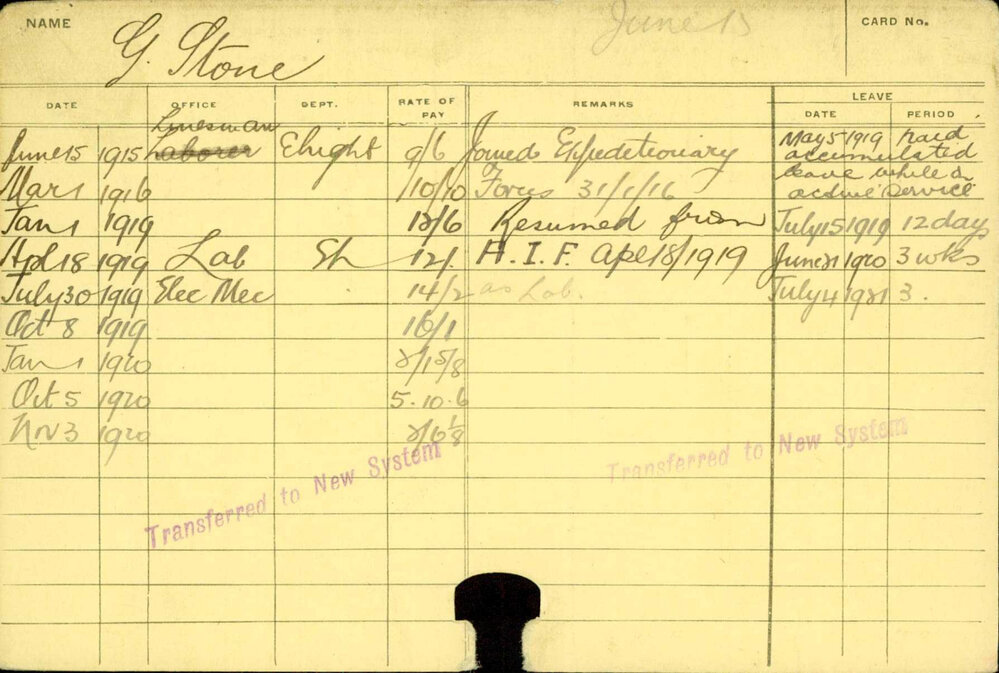 NAME G. Stone June 15 CARD No.
DATE OFFICE DEPT. RATE OF PAY REMARKS LEAVE
DATE PERIOD
Linesman
June 15 1915 Laborer Elright 9/6 Joined Expeditionary May 5 1919 paid
accumulated
Mar 1 1916 10/10 Forces 31/1/16 leave while on
active service
Jan 1 1919 12/6 Resumed from July 15 1919 12 days
Apl 18 1919 Lab Sh 12/. A.I.F. Apl 18/1919 June 21 1920 3 wks
July 30 1919 Elec Mec 14/2 as Lab. July 4 1921 3.
Oct 8 1919 16/1
Jan 1 1920 2/15/8
Oct 5 1920 5.10.6
Nov 3 1920
Transferred to New System Transferred to New System